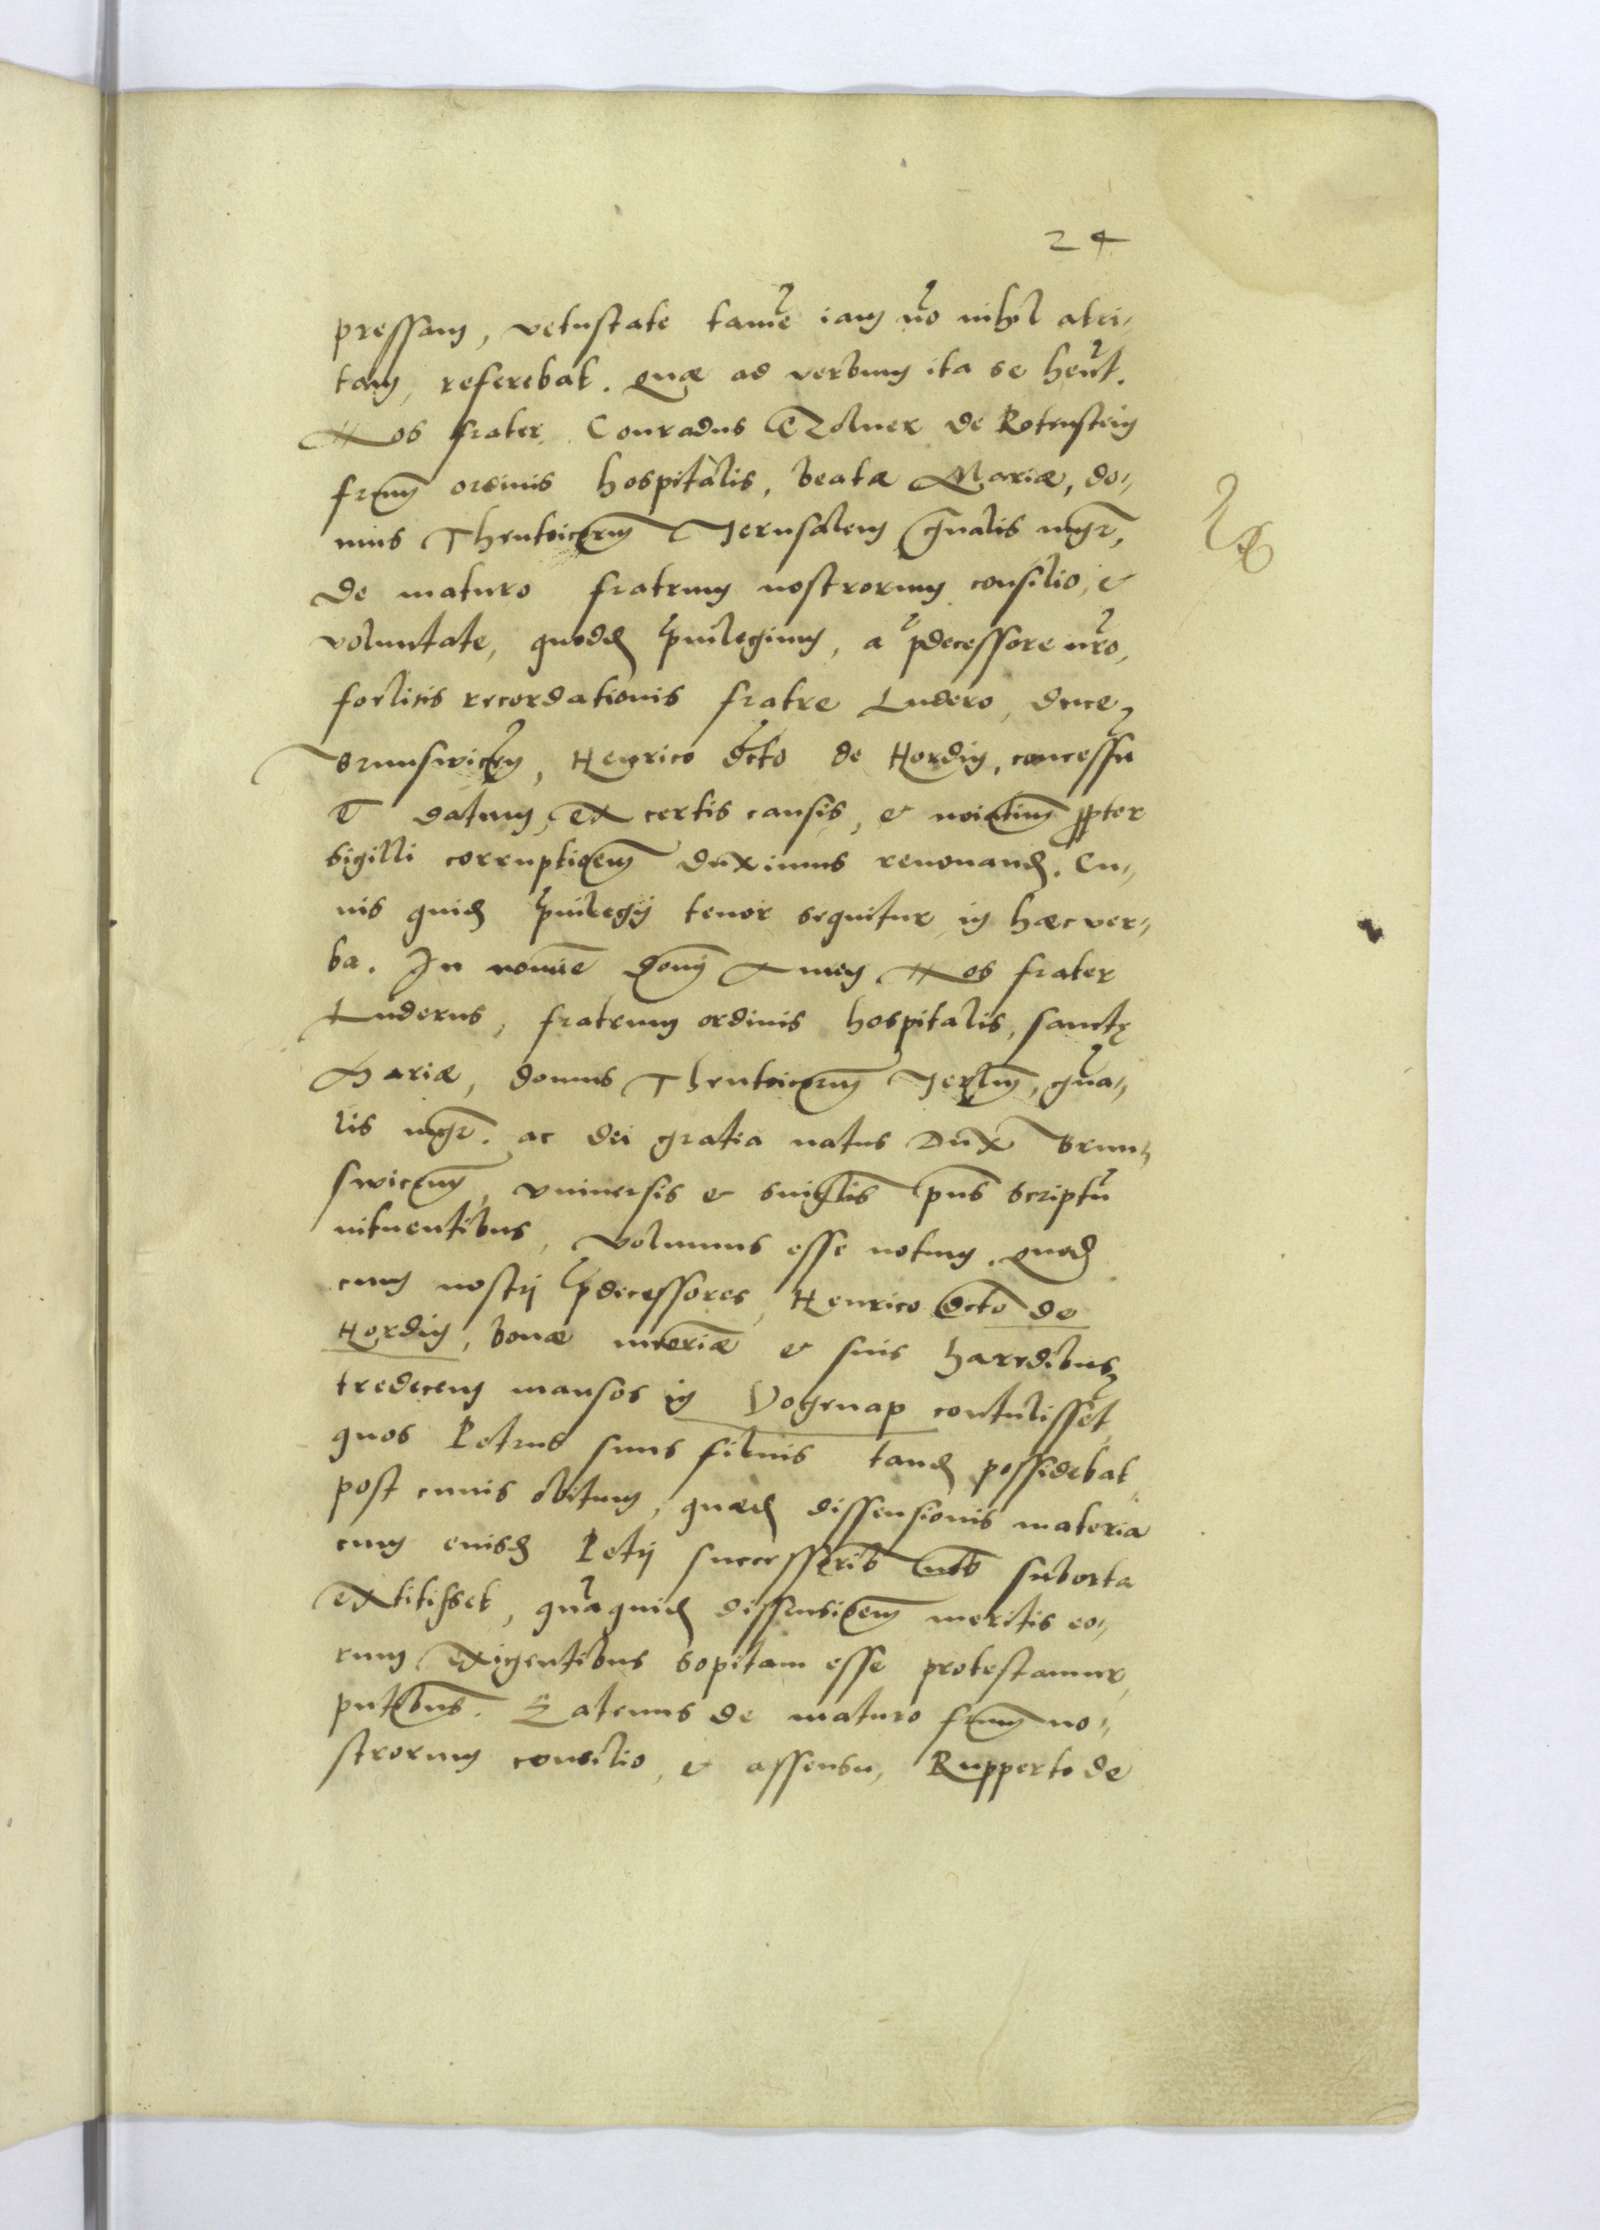 24
pressam, vetustate tame iam no nihil atri,,
tam, referebat. Quæ ad verbum ita se hent.
Nos frater Conradus Czolner de Rotenstein
frum ordinis hospitalis, beatæ Mariæ, do,,
mus Theutoicorum Jerusalem gnalis mgr,
de maturo fratrum nostrorum consilio, &
voluntate, quodd privilegium, a pdecessore nro,
foelicis recordationis fratre Ludero, duce
Brunswicen, Henrico dcto de Hordin, concessu
& datum, ex certis causis, & noiatim ppter
sigilli corruptioem duximus renouand. Cu,,
ius quid priuilegij tenor sequitur in hæc ver,,
ba. In nomie domi Amen. Nos frater
Luderus, fratrum ordinis hospitalis, sanctę
Mariæ, domus Theutoicorum Jerlm, gna,,
lis mgr. ac dei gratia natus Dux Brun,,
swicen, vniuersis & singlis pns scriptu
intuentibus, volumus esse notum. Quod
cum nostri pdecessores, Henrico dcto de
Hordin, bonæ meoriæ & suis hæredibus
tredecem mansos in Vogenap contulisset,
quos Petrus suus filius tand possidebat
post cuius obitum, quæd dissensionis materia
cum eiusd Petri successorib suborta
extitisset, qua quid dissensioem meritis eo,,
rum exigentibus sopitam esse protestamur,
pntibus. Eatenus de maturo frum no,,
strorum consilio, & assensu, Rupperto de